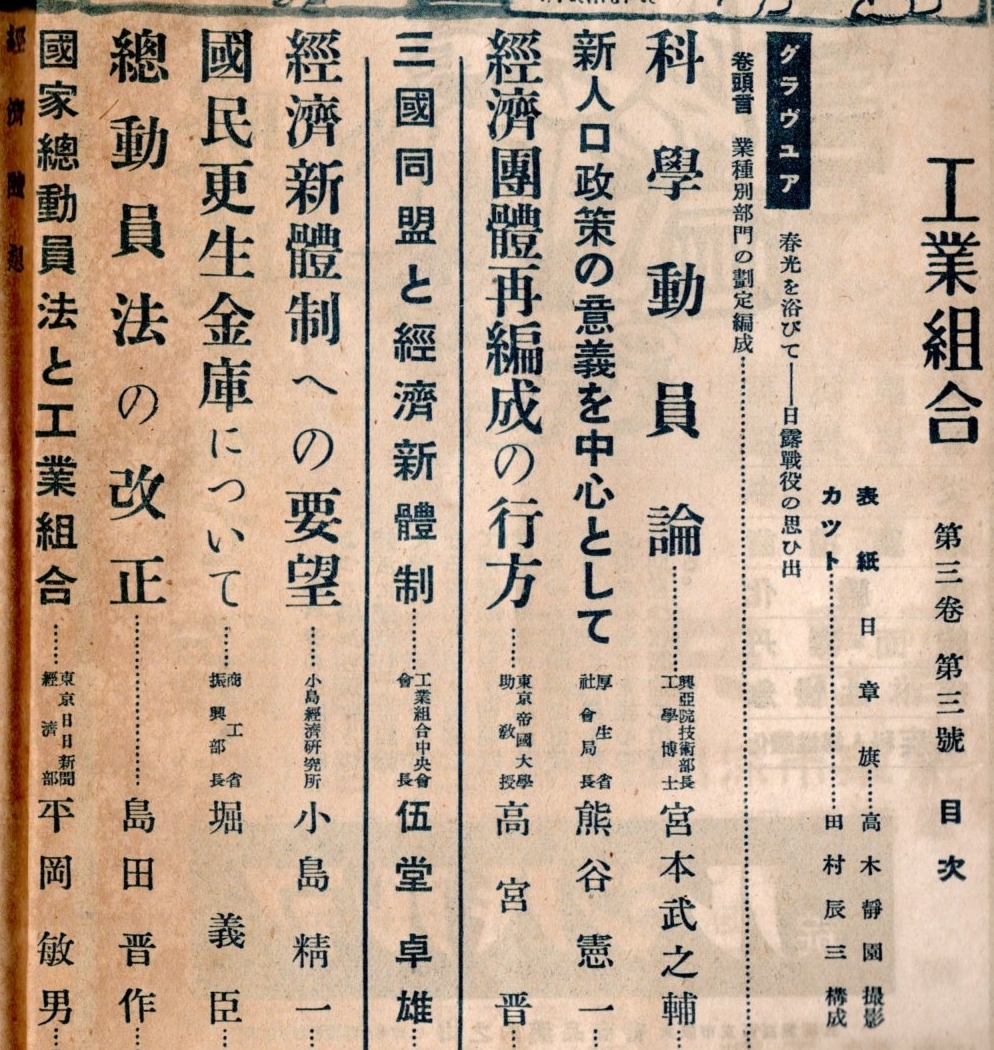 工業組合 第三卷 第三號 目次
表紙 日章旗……高木靜園撮影
カット……田村辰三構成
グラヴュア 春光を浴びて——日露戰役の思ひ出
卷頭言 業種別部門の劃定編成……
科學動員論……興亞院技術部長 工學博士 宮本武之輔
新人口政策の意義を中心として 厚生省 社會局長 熊谷憲一…
經濟團體再編成の行方……東京帝國大學 助敎授 高宮晋…
三國同盟と經濟新體制……工業組合中央會 會長 伍堂卓雄…
經濟新體制への要望……小島經濟硏究所 小島精一…
國民更生金庫について……商工省 振興部長 堀義臣…
總動員法の改正……島田晋作…
國家總動員法と工業組合……東京日日新聞 經濟部 平岡敏男…